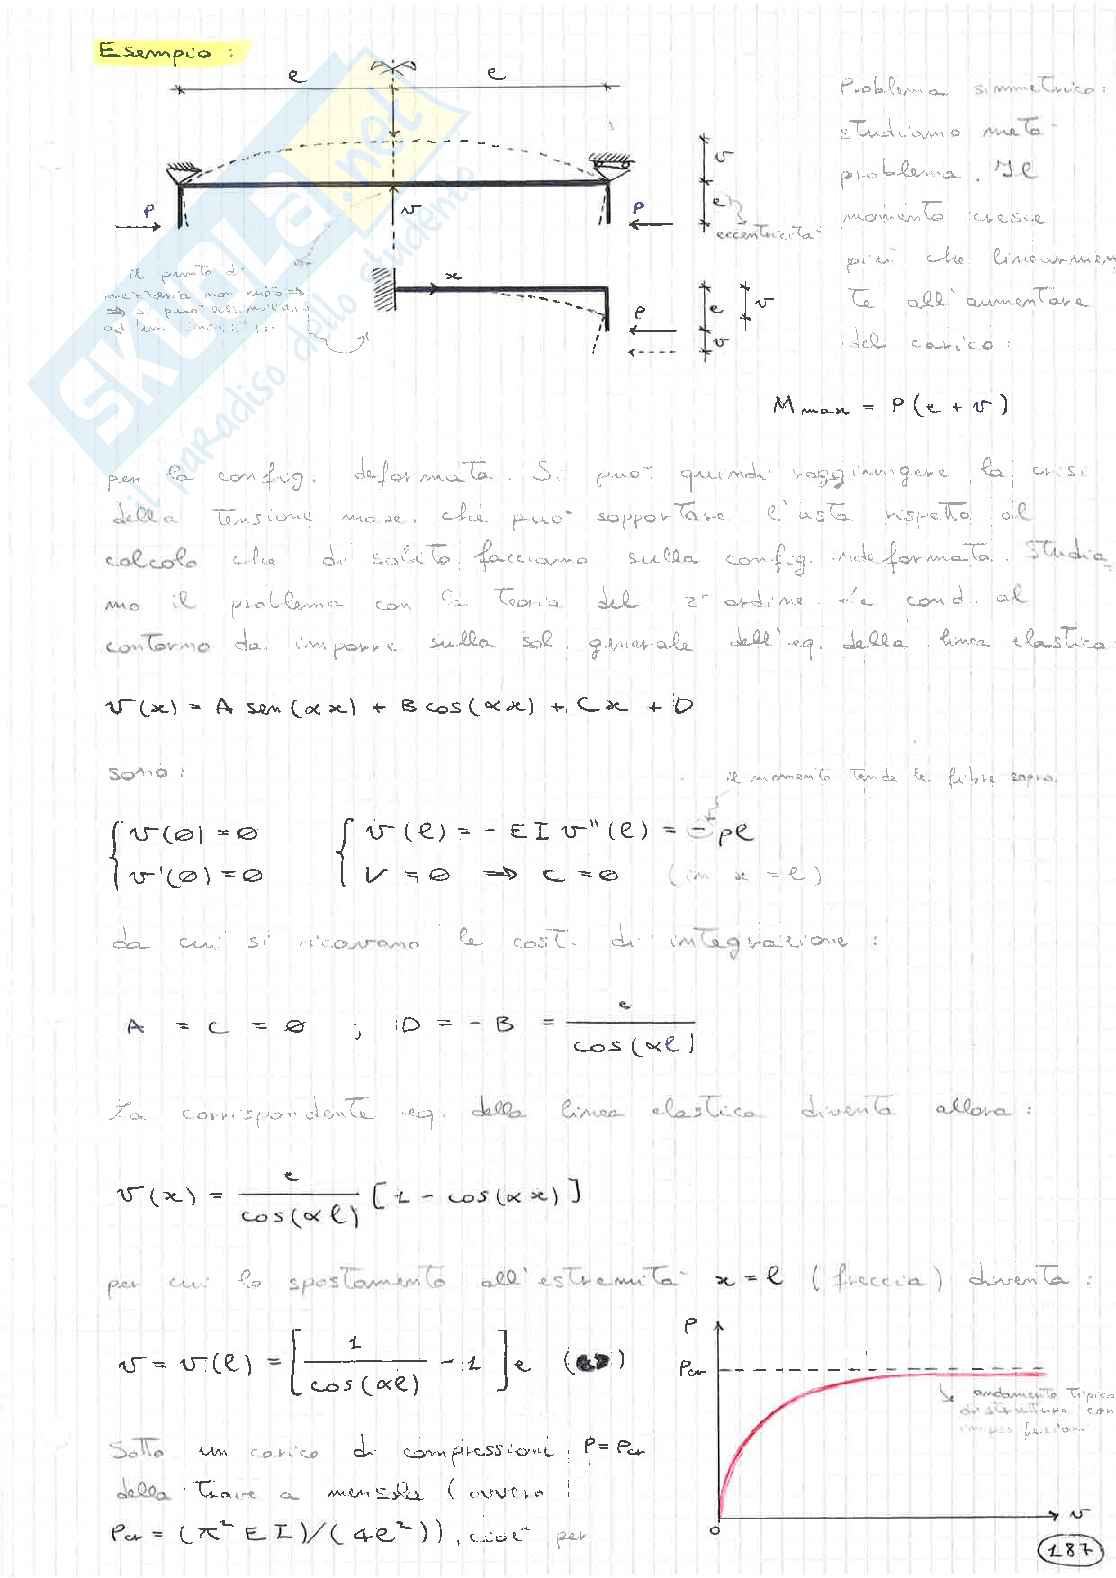 Esempio:
e e
Problema simmetrico:
studiamo metà
problema. Il
momento cresce
più che linearmen
te all'aumentare
del carico:
v
e
eccentricità
P P
v
il punto di
x
P
e v
v
Mmax = P(e + v)
per la config. deformata. Si può quindi raggiungere la crisi
della tensione max. che può sopportare l'asta rispetto al
calcolo che di solito facciamo sulla config. indeformata. Studia
mo il problema con la teoria del 2° ordine. Le cond. al
contorno da imporre sulla sol. generale dell'eq. della linea elastica
v(x) = A sen(αx) + B cos(αx) + Cx + D
sono:
il momento tende le fibre sopra
v(0) = 0 v(l) = - EI v''(l) = - pl
v'(0) = 0 V = 0 ⇒ C = 0 (in x = l)
da cui si ricavano le cost. di integrazione:
A = C = 0 ; D = - B = e / cos(αl)
La corrispondente eq. della linea elastica diventa allora:
v(x) = e / cos(αl) [1 - cos(αx)]
per cui lo spostamento all'estremità x = l (freccia) diventa:
v = v(l) = [1 / cos(αl) - 1] e
P
Pcr
andamento tipico
di struttura con
imperfezioni
v
0
Sotto un carico di compressioni P = Pcr
della trave a mensola (ovvero
Pcr = (π² E I)/(4l²)), cioè per
187
SKUOLA.net
il paradiso dello studente